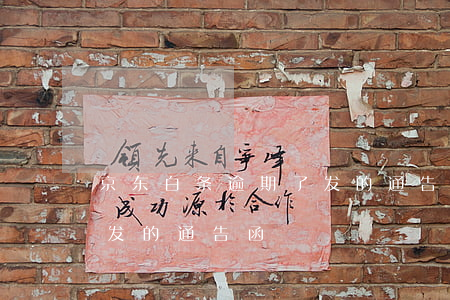 领先来自争峰
京东白条逾期了发的通告
成功源於合作
发的通告函